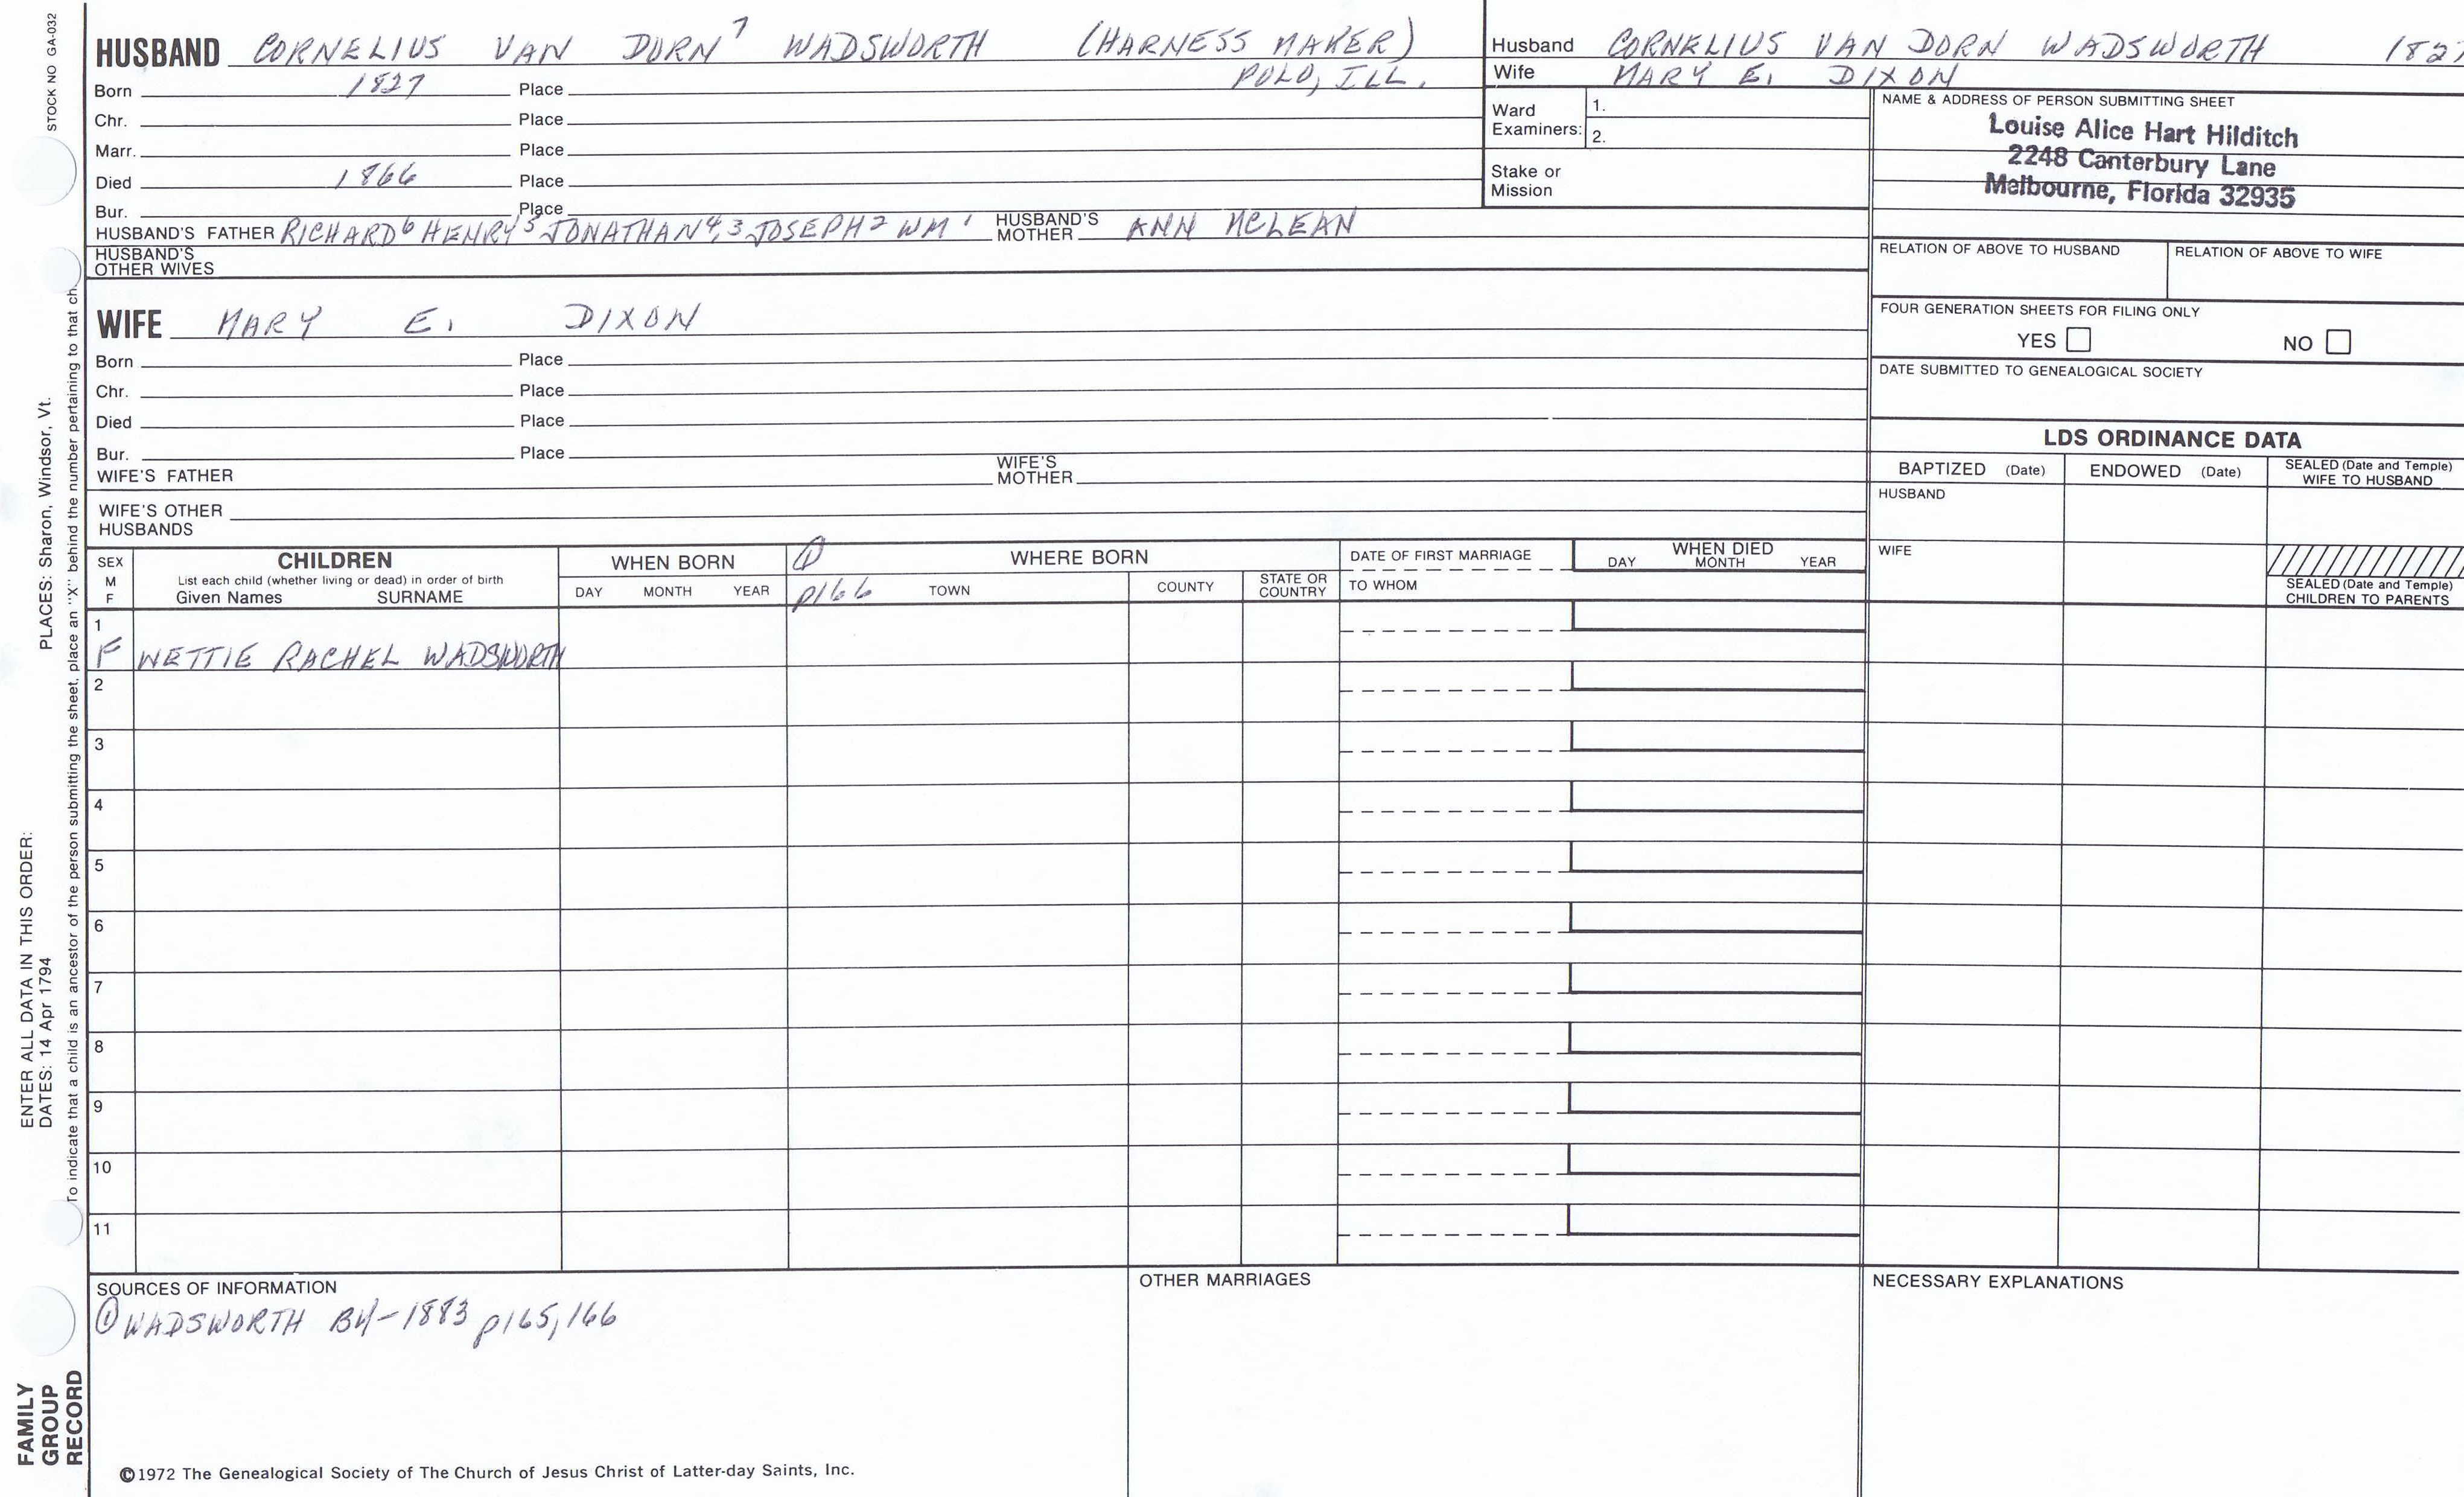 STOCK NO GA-032
HUSBAND CORNELIUS VAN DORN 7 WADSWORTH (HARNESS MAKER)
Born 1827 Place POLO, ILL.
Chr. Place
Marr. Place
Died 1866 Place
Bur. Place
HUSBAND'S FATHER RICHARD 6 HENRY 5 JONATHAN 4,3 JOSEPH 2 WM 1 HUSBAND'S MOTHER ANN MCLEAN
HUSBAND'S OTHER WIVES
WIFE MARY E. DIXON
Born Place
Chr. Place
Died Place
Bur. Place
WIFE'S FATHER WIFE'S MOTHER
WIFE'S OTHER HUSBANDS
Husband CORNELIUS VAN DORN WADSWORTH 1827
Wife MARY E. DIXON
Ward Examiners: 1.
2.
Stake or Mission
NAME & ADDRESS OF PERSON SUBMITTING SHEET
Louise Alice Hart Hilditch
2248 Canterbury Lane
Melbourne, Florida 32935
RELATION OF ABOVE TO HUSBAND RELATION OF ABOVE TO WIFE
FOUR GENERATION SHEETS FOR FILING ONLY
YES NO
DATE SUBMITTED TO GENEALOGICAL SOCIETY
LDS ORDINANCE DATA
BAPTIZED (Date) ENDOWED (Date) SEALED (Date and Temple) WIFE TO HUSBAND
HUSBAND
WIFE
SEALED (Date and Temple) CHILDREN TO PARENTS
SEX M F CHILDREN WHEN BORN ① WHERE BORN DATE OF FIRST MARRIAGE WHEN DIED
List each child (whether living or dead) in order of birth
Given Names SURNAME DAY MONTH YEAR p166 TOWN COUNTY STATE OR COUNTRY TO WHOM DAY MONTH YEAR
1
F NETTIE RACHEL WADSWORTH
2
3
4
5
6
7
8
9
10
11
SOURCES OF INFORMATION
① WADSWORTH BY-1883 p165,166
OTHER MARRIAGES
NECESSARY EXPLANATIONS
©1972 The Genealogical Society of The Church of Jesus Christ of Latter-day Saints, Inc.
FAMILY GROUP RECORD
ENTER ALL DATA IN THIS ORDER:
DATES: 14 Apr 1794 PLACES: Sharon, Windsor, Vt.
To indicate that a child is an ancestor of the person submitting the sheet, place an "X" behind the number pertaining to that ch